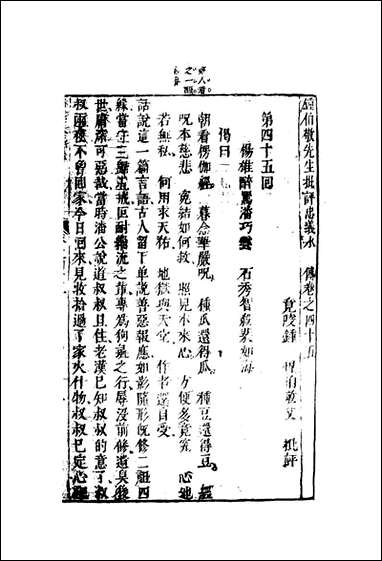 鍾伯敬先生批評忠義水滸傳卷之四十五
竟陵鍾惺伯敬父批評
第四十五回
楊雄醉罵潘巧雲 石秀智殺裴如海
偈曰
朝看楞伽經 暮念華嚴呪 種瓜還得瓜 種豆還得豆 經
呪本慈悲 冤結如何救 照見本來心 方便多竟究 心地
若無私 何用求天祐 地獄與天堂 作者還自受
話說這一篇言語古人留下單說善惡報應如影隨形既修二祖四
緣當守三歸五戒叵耐緇流之輩專爲狗彘之行辱沒前修遺臭後
世庸深可惡哉當時潘公說道叔叔且住老漢已知叔叔的意了叔
叔兩夜不曾回家今日回來見收拾過了家火什物叔叔已定心